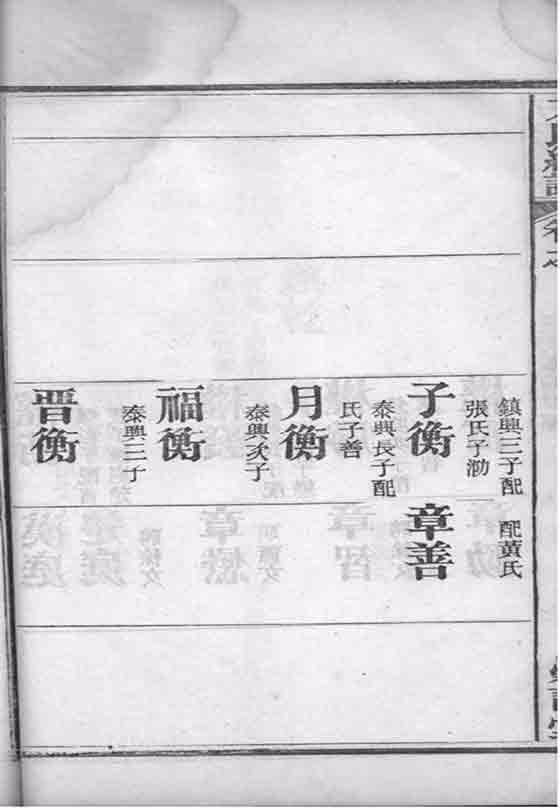 鎮興三子配
張氏子泐
子衡
泰興長子配
氏子善
月衡
泰興次子
福衡
泰興三子
晋衡
配黃氏
章善